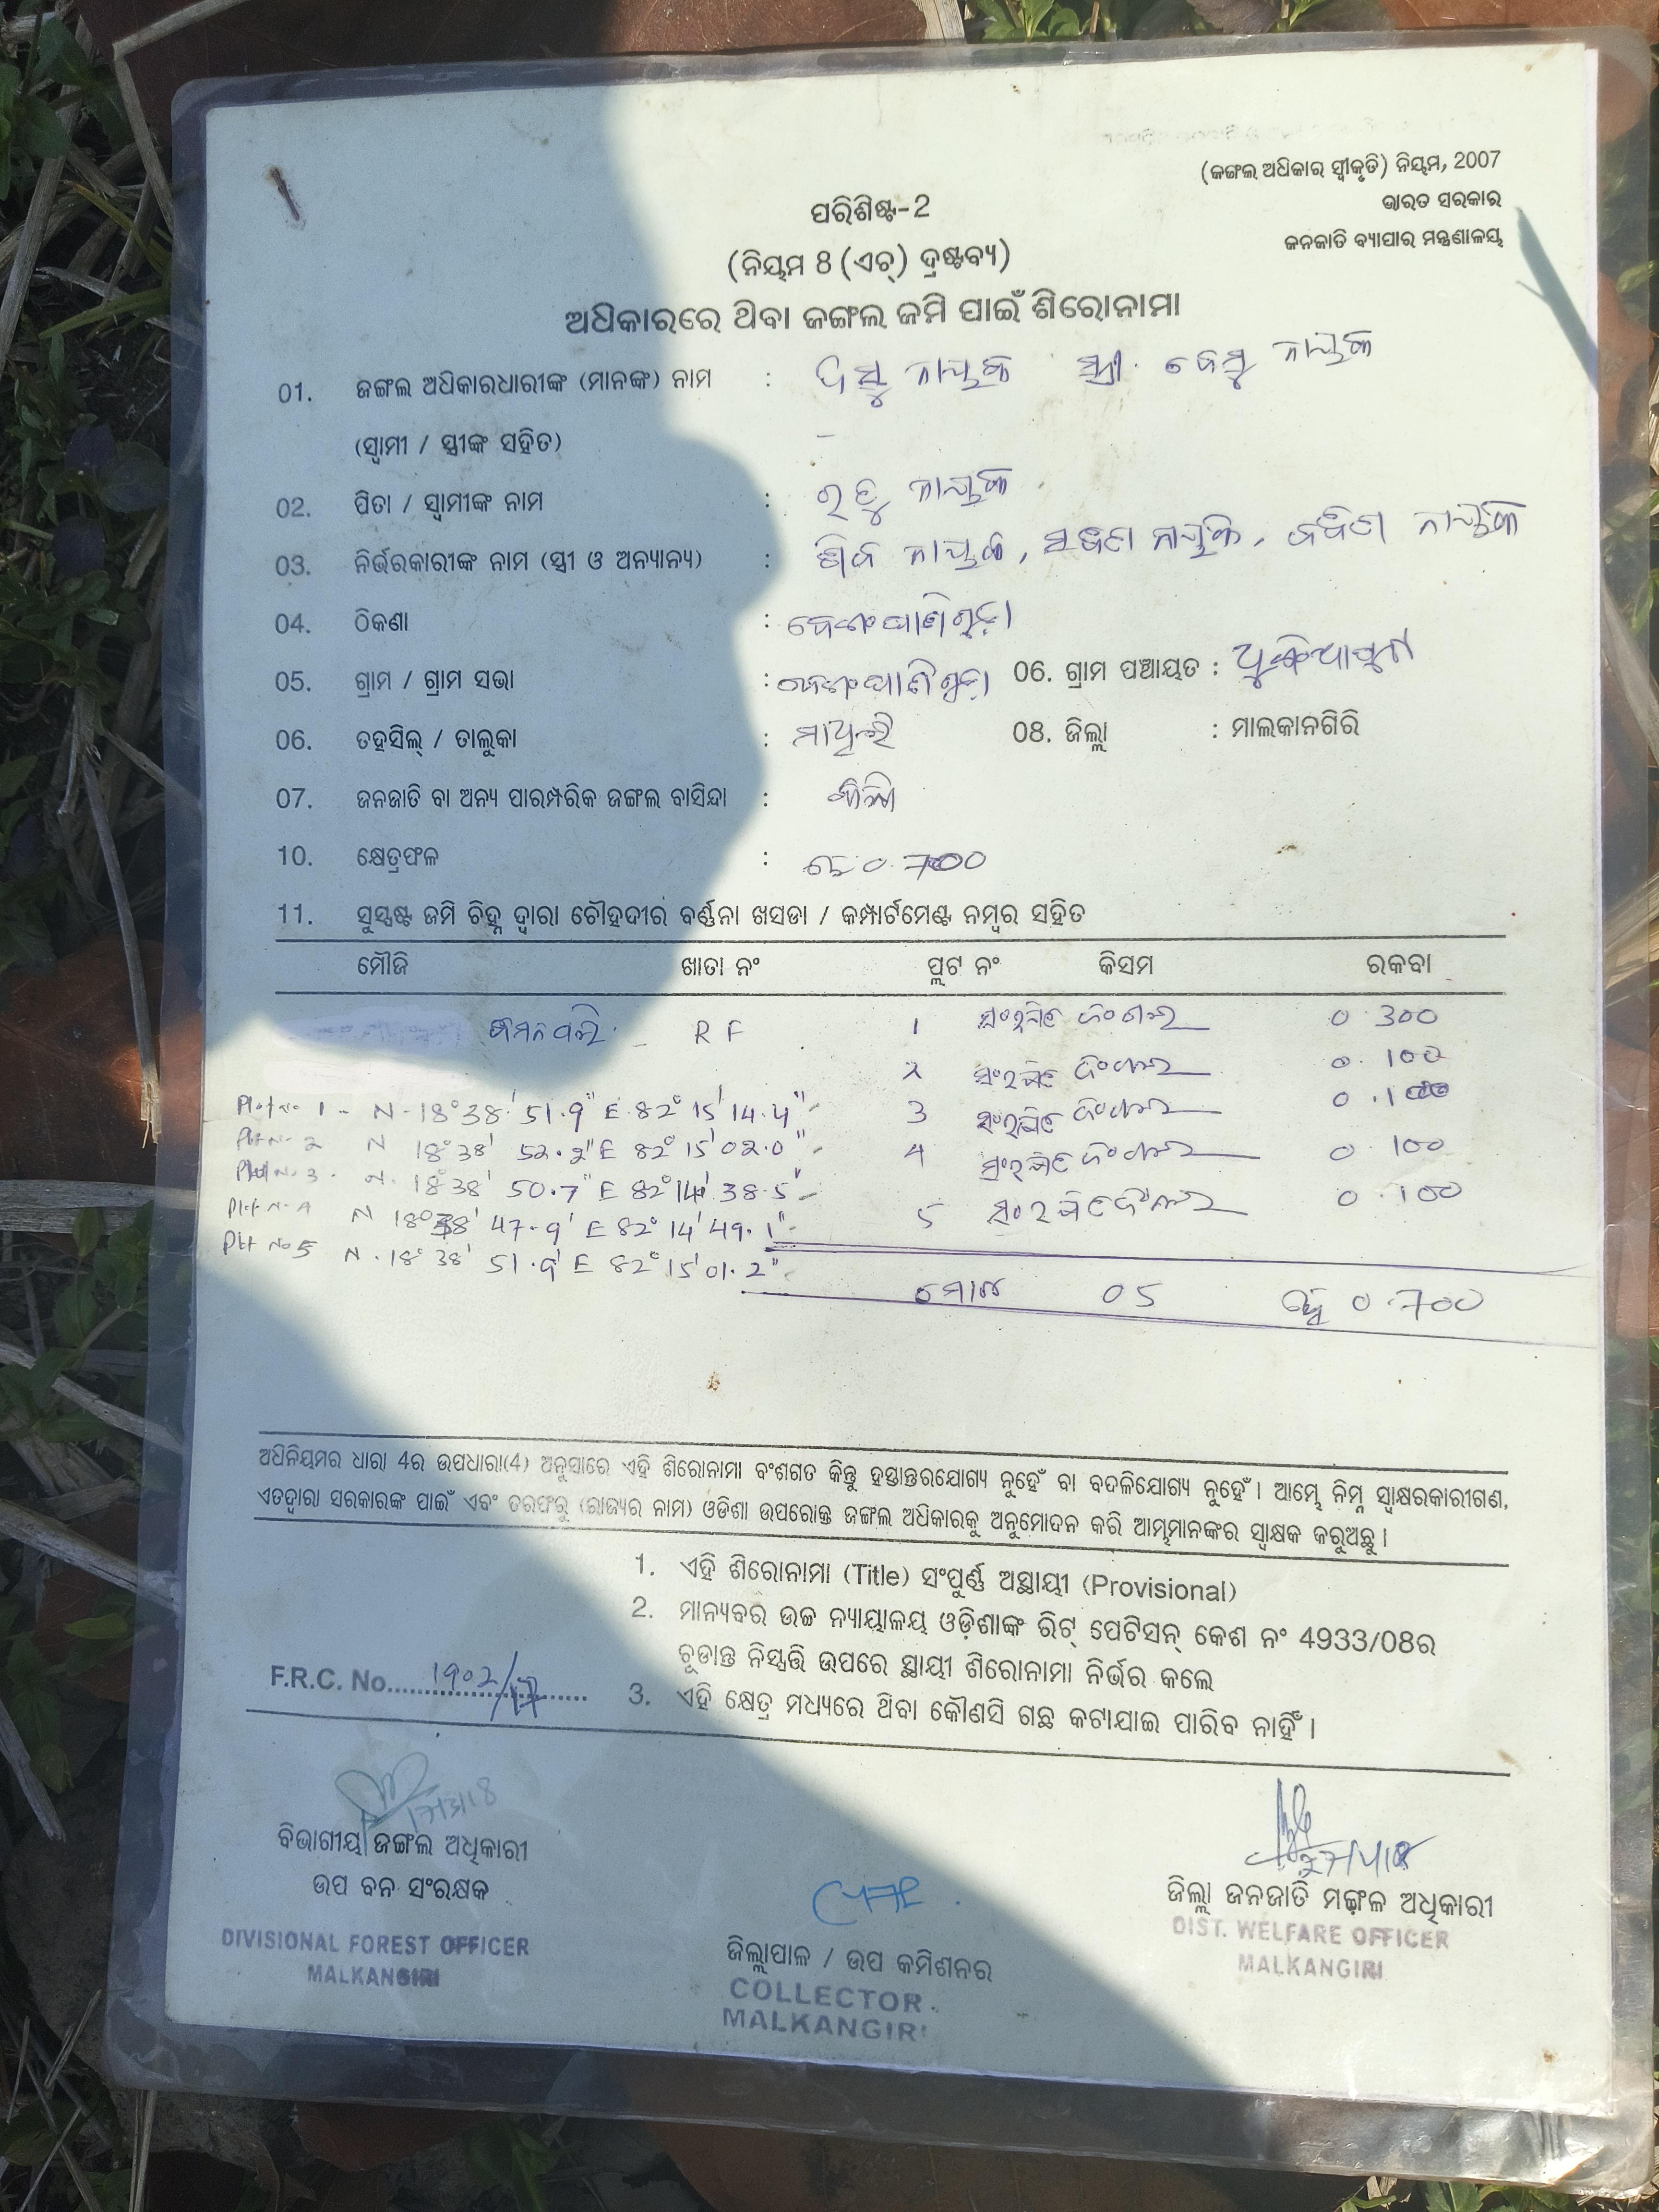 (ଜଙ୍ଗଲ ଅଧିକାର ସ୍ୱୀକୃତି) ନିୟମ, 2007
ପରିଶିଷ୍ଟ-2
ଭାରତ ସରକାର
(ନିୟମ 8 (ଏଚ୍) ଦ୍ରଷ୍ଟବ୍ୟ)
ଜନଜାତି ବ୍ୟାପାର ମନ୍ତ୍ରଣାଳୟ
ଅଧିକାରରେ ଥିବା ଜଙ୍ଗଲ ଜମି ପାଇଁ ଶିରୋନାମା
01. ଜଙ୍ଗଲ ଅଧିକାରଧାରୀଙ୍କ (ମାନଙ୍କ) ନାମ : ନାୟକ ସ୍ତ୍ରୀ. ନାୟକ
(ସ୍ୱାମୀ / ସ୍ତ୍ରୀଙ୍କ ସହିତ)
02. ପିତା / ସ୍ୱାମୀଙ୍କ ନାମ : ନାୟକ
03. ନିର୍ଭରକାରୀଙ୍କ ନାମ (ସ୍ତ୍ରୀ ଓ ଅନ୍ୟାନ୍ୟ) : ନାୟକ, ନାୟକ, ନାୟକ
04. ଠିକଣା :
05. ଗ୍ରାମ / ଗ୍ରାମ ସଭା : 06. ଗ୍ରାମ ପଞ୍ଚାୟତ :
06. ତହସିଲ୍ / ତାଲୁକା : 08. ଜିଲ୍ଲା : ମାଲକାନଗିରି
07. ଜନଜାତି ବା ଅନ୍ୟ ପାରମ୍ପରିକ ଜଙ୍ଗଲ ବାସିନ୍ଦା :
10. କ୍ଷେତ୍ରଫଳ : ହେ 0.700
11. ସୁସ୍ପଷ୍ଟ ଜମି ଚିହ୍ନ ଦ୍ୱାରା ଚୌହଦୀର ବର୍ଣ୍ଣନା ଖସଡା / କମ୍ପାର୍ଟମେଣ୍ଟ ନମ୍ବର ସହିତ
ମୌଜି ଖାତା ନଂ ପ୍ଲଟ ନଂ କିସମ ରକବା
RF 1 ସଂରକ୍ଷିତ ଜଂଗଲ 0.300
2 ସଂରକ୍ଷିତ ଜଂଗଲ 0.100
Plot No 1 - N-18°38'51.9" E 82°15'14.4" 3 ସଂରକ୍ଷିତ ଜଂଗଲ 0.100
Plot No 2 N 18°38' 52.2" E 82°15'02.0" 4 ସଂରକ୍ଷିତ ଜଂଗଲ 0.100
Plot No. 3. N. 18°38' 50.7" E 82°14' 38.5"
Plot No. 4 N 18°38' 47.9' E 82°14'49.1" 5 ସଂରକ୍ଷିତ ଜଂଗଲ 0.100
Plot No 5 N. 18°38' 51.9' E 82°15'01.2"
ମୋଟ 05 0.700
ଅଧିନିୟମର ଧାରା 4ର ଉପଧାରା(4) ଅନୁସାରେ ଏହି ଶିରୋନାମା ବଂଶଗତ କିନ୍ତୁ ହସ୍ତାନ୍ତରଯୋଗ୍ୟ ନୁହେଁ ବା ବଦଳିଯୋଗ୍ୟ ନୁହେଁ । ଆମ୍ଭେ ନିମ୍ନ ସ୍ୱାକ୍ଷରକାରୀଗଣ,
ଏତଦ୍ୱାରା ସରକାରଙ୍କ ପାଇଁ ଏବଂ ତରଫରୁ (ରାଜ୍ୟର ନାମ) ଓଡିଶା ଉପରୋକ୍ତ ଜଙ୍ଗଲ ଅଧିକାରକୁ ଅନୁମୋଦନ କରି ଆମ୍ଭମାନଙ୍କର ସ୍ୱାକ୍ଷକ କରୁଅଛୁ ।
1. ଏହି ଶିରୋନାମା (Title) ସଂପୁର୍ଣ୍ଣ ଅସ୍ଥାୟୀ (Provisional)
2. ମାନ୍ୟବର ଉଚ୍ଚ ନ୍ୟାୟାଳୟ ଓଡ଼ିଶାଙ୍କ ରିଟ୍ ପେଟିସନ୍ କେଶ ନଂ 4933/08ର
ଚୂଡାନ୍ତ ନିସ୍ପତ୍ତି ଉପରେ ସ୍ଥାୟୀ ଶିରୋନାମା ନିର୍ଭର କଲେ
F.R.C. No. 1902/17
3. ଏହି କ୍ଷେତ୍ର ମଧ୍ୟରେ ଥିବା କୌଣସି ଗଛ କଟାଯାଇ ପାରିବ ନାହିଁ ।
ବିଭାଗୀୟ ଜଙ୍ଗଲ ଅଧିକାରୀ
ଉପ ବନ ସଂରକ୍ଷକ
DIVISIONAL FOREST OFFICER
MALKANGIRI
ଜିଲ୍ଲାପାଳ / ଉପ କମିଶନର
COLLECTOR.
MALKANGIRI
ଜିଲ୍ଲା ଜନଜାତି ମଙ୍ଗଳ ଅଧିକାରୀ
DIST. WELFARE OFFICER
MALKANGIRI